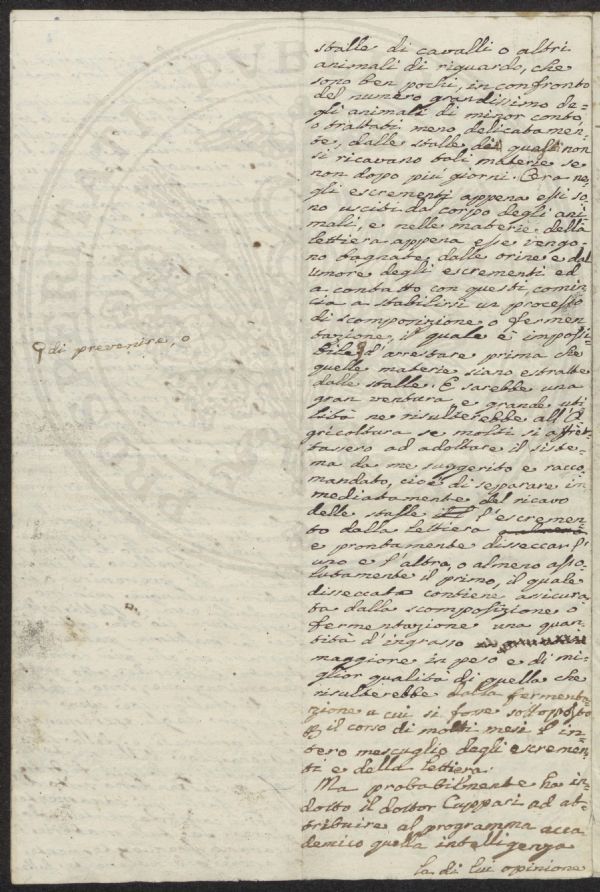 stalle di cavalli o altri
animali di riguardo, che
sono ben pochi, in confronto
del numero grandissimo de=
gli animali di minor conto,
o trattati meno delicatamen=
te, dalle stalle dei quali non
si ricavano tali materie se
non dopo più giorni. Ora ne=
gli escrementi appena essi so=
no usciti da corpo degli ani=
mali, e nelle materie della
lettiera appena esse vengo=
no bagnate dalle orine e dal
umore degli escrementi ed
a contatto con questi, comin=
cia a stabilirsi un processo
di scomposizione o fermen=
tazione, il quale è impossi=
bile d'arrestare prima che
di prevenire, o
quelle materie siano estratte
dalle stalle. E sarebbe una
gran ventura e grande uti=
lità ne risulterebbe all'A=
gricoltura se molti si affret=
tassero ad adottare il siste=
ma da me suggerito e racco=
mandato, cioè di separare im=
mediatamente del ricavo
delle stalle l'escremen=
to dalla lettiera
e prontamente disseccar l'
uno e l'altra, o almeno asso=
lutamente il primo, il quale
disseccato contiene assicura=
ta dalla scomposizione o
fermentazione una quan=
tità d'ingrasso
maggiore in peso e di mi=
glior qualità di quella che
risulterebbe dalla fermenta=
zione a cui si fosse sottoposto
il corso di molti mesi l'in=
tero mescuglio degli escremen=
ti e della lettiera.
Ma probabilmente ha in=
dotto il dottor Cuppari ad at=
tribuire al programma acca=
demico quella intelligenza
la di lui opinione
PVB